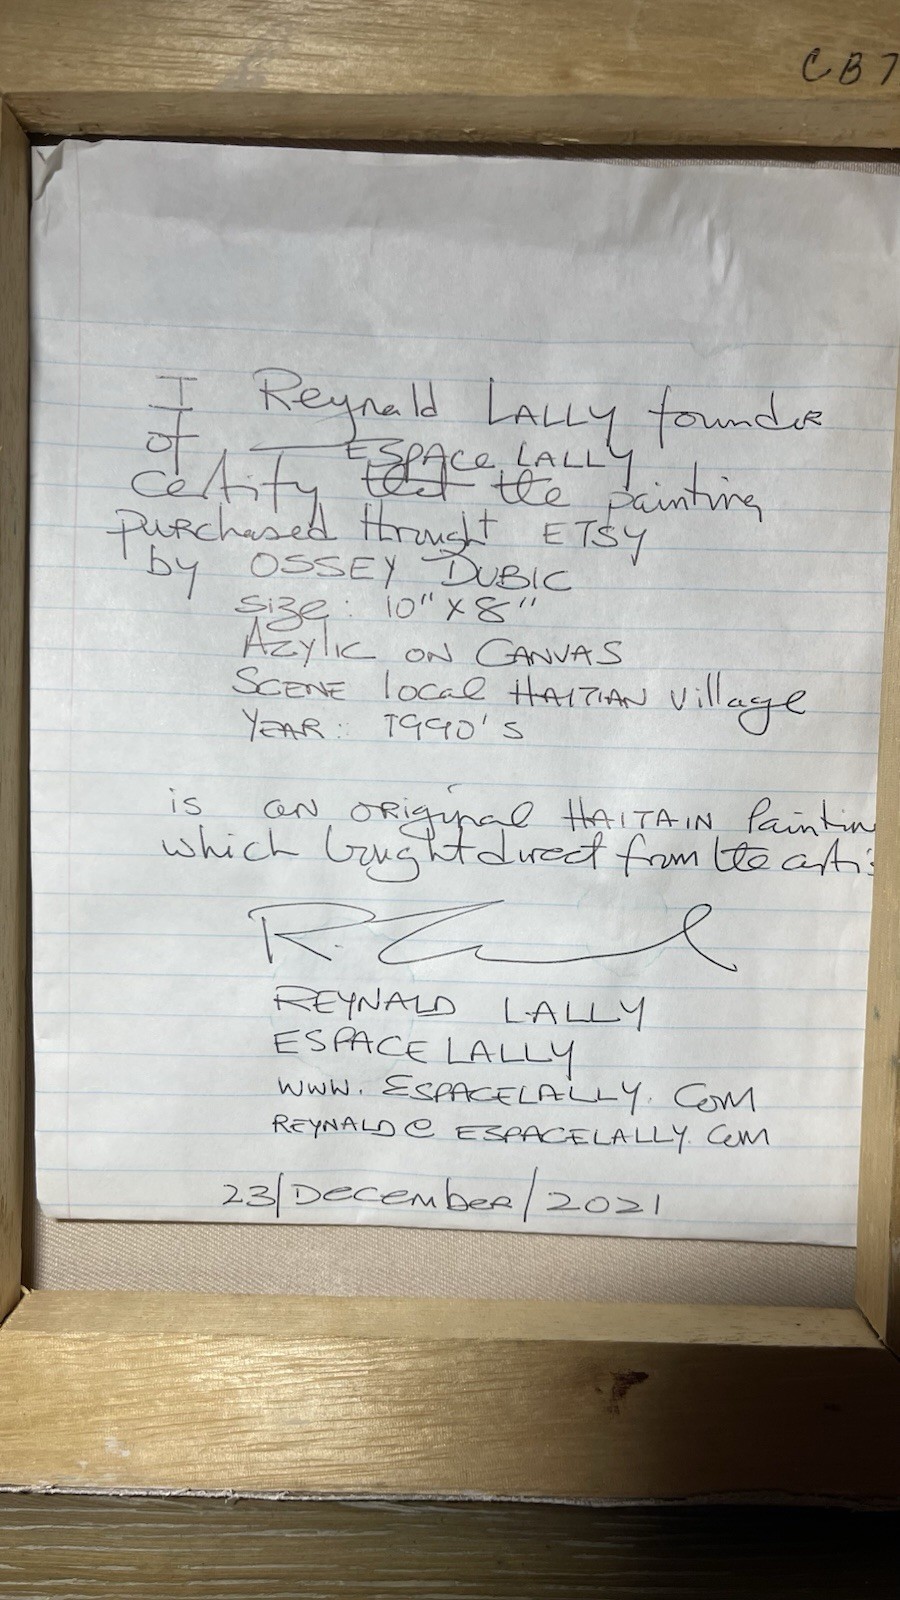 CB7
I Reynald LALLY founder
of ESPACE LALLY
certify that the painting
purchased throught ETSY
by OSSEY DUBIC
size: 10" x 8"
Azylic ON CANVAS
SCENE local HAITIAN Village
YEAR: 1990's
is an ORiginal HAITAIN Paintin
which bought direct from the artis
R. L
REYNALD LALLY
ESPACE LALLY
WWW.ESPACELALLY.COM
REYNALD@ESPACELALLY.COM
23/December/2021